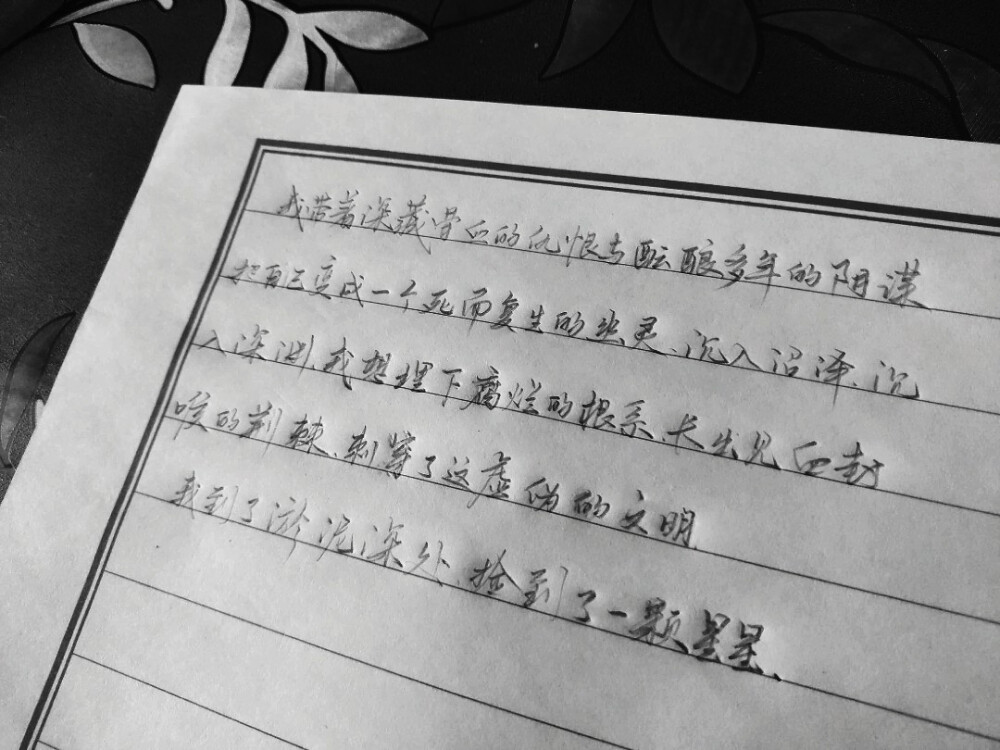 我带着深藏骨血的仇恨与酝酿多年的阴谋
把自己变成一个死而复生的幽灵、沉入沼泽、沉
入深渊、我想埋下腐烂的根系、长出见血封
喉的荆棘、刺穿了这虚伪的文明
我到了淤泥深处、捡到了一颗星星、